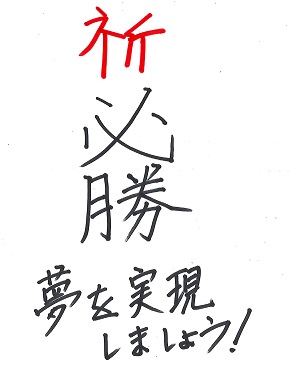 祈
必
勝
夢を実現
しましょう!